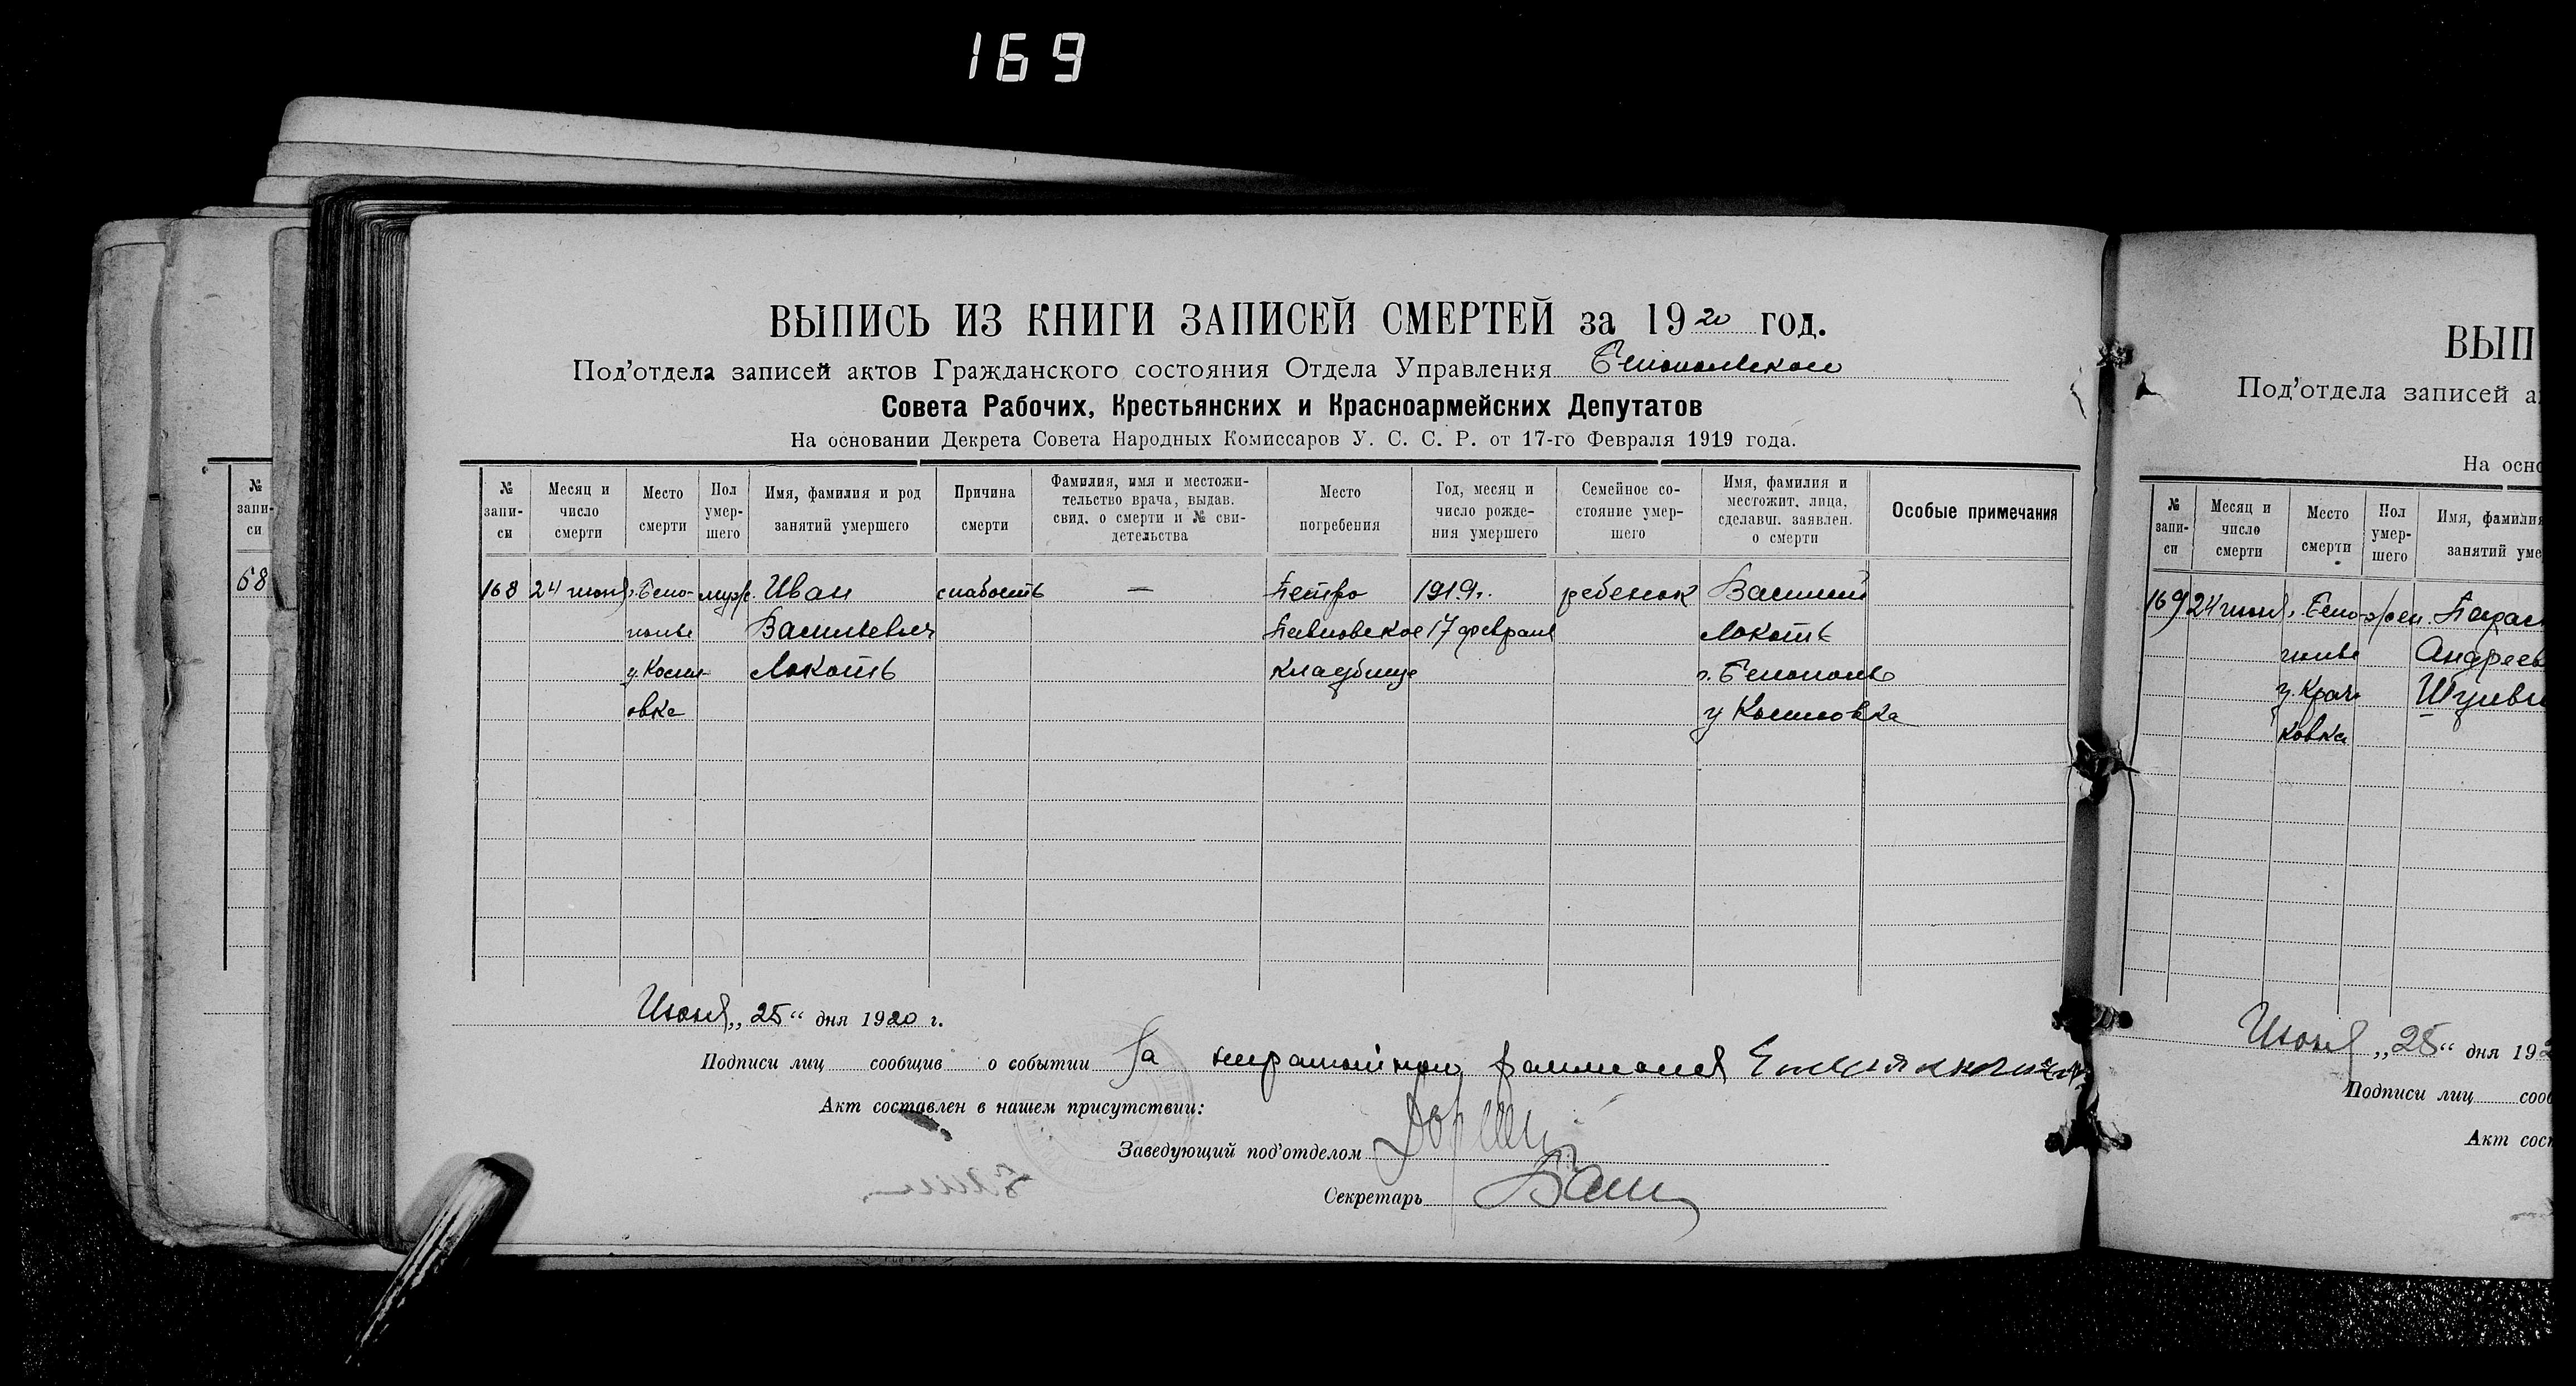 169
ВЫПИСЬ ИЗ КНИГИ ЗАПИСЕЙ СМЕРТЕЙ за 1920 год.
Под'отдела записей актов Гражданского состояния Отдела Управления Белопольском
Совета Рабочих, Крестьянских и Красноармейских Депутатов
На основании Декрета Совета Народных Комиссаров У. С. С. Р. от 17-го Февраля 1919 года.
№ запи- си
Месяц и число смерти
Место смерти
Пол умер- шего
Имя, фамилия и род занятий умершего
Причина смерти
Фамилия, имя и местожи- тельство врача, выдав. свид. о смерти и № сви- детельства
Место погребения
Год, месяц и число рожде- ния умершего
Семейное со- стояние умер- шего
Имя, фамилия и местожит. лица, сделавш. заявлен. о смерти
Особые примечания
168 24 июня г. Бело- муж. Иван слабость — Петро 1919 г. ребенок Василий
полье Васильевич Павловское 17 февраля Локоть
у. Локоть кладбище г. Белополье
овка у
Июня „25“ дня 1920 г.
Подписи лиц сообщив о событии За неграмотного
Акт составлен в нашем присутствии:
Заведующий под'отделом
Секретарь
№ запи- си
68
ВЫП
Под'отдела записей а
На осно
№ запи- си
Месяц и число смерти
Место смерти
Пол умер- шего
Имя, фамилия
занятий уме
169 24 июня г. Бело- жен. Парас
полье Андреев
ковка
Июня „25“ дня 192
Подписи лиц сооб
Акт сост